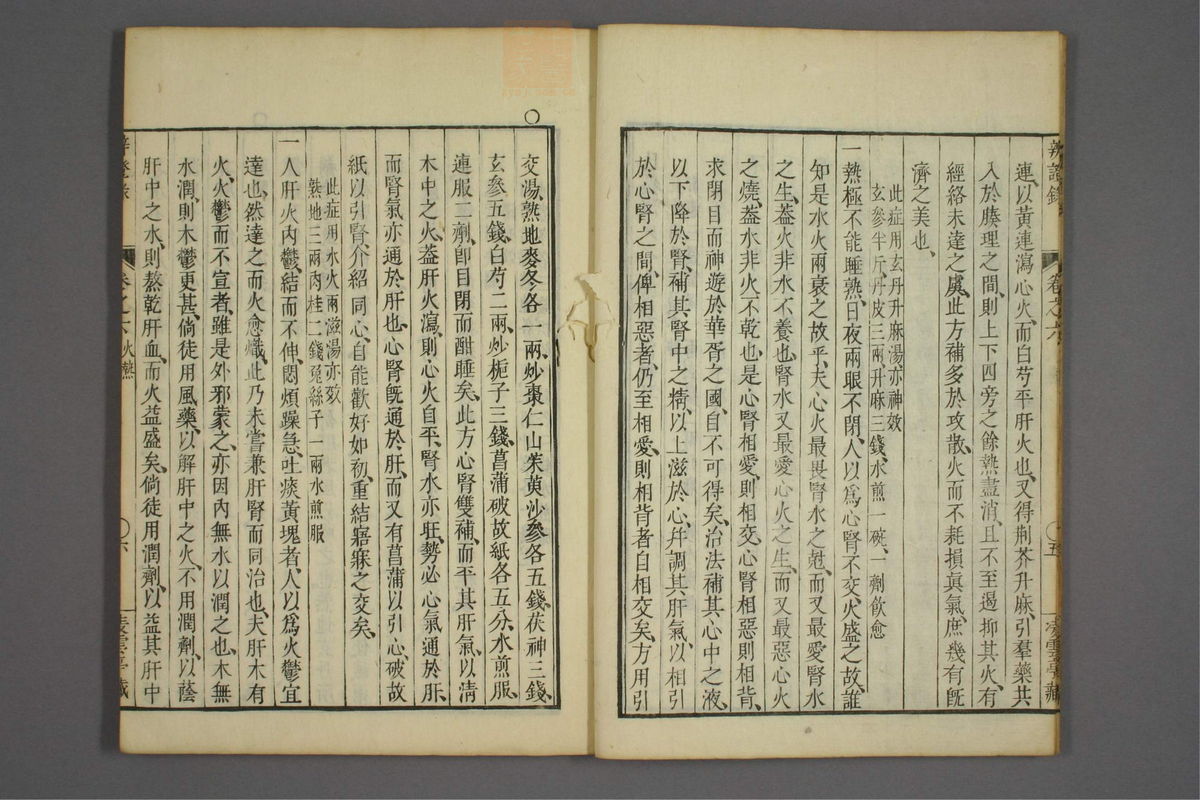 辨證錄
卷之六
五
凌雲亭藏
連以黃連瀉心火、而白芍平肝火也、又得荆芥升麻、引羣藥共
入於腠理之間、則上下四旁之餘熱盡消、且不至遏抑其火、有
經絡未達之虞、此方補多於攻、散火而不耗損眞氣、庶幾有旣
濟之美也、
此症用玄丹升麻湯亦神效
玄參半斤丹皮三兩升麻三錢、水煎一碗、一劑飲愈
一熱極不能睡熟、日夜兩眼不閉、人以爲心腎不交、火盛之故、誰
知是水火兩衰之故乎、夫心火最畏腎水之尅、而又最愛腎水
之生、蓋火非水不養也、腎水又最愛心火之生、而又最惡心火
之燒、蓋水非火不乾也、是心腎相愛、則相交、心腎相惡則相背、
求閉目而神遊於華胥之國、自不可得矣、治法補其心中之液、
以下降於腎、補其腎中之精、以上滋於心、幷調其肝氣、以相引
於心腎之間、俾相惡者、仍至相愛、則相背者自相交矣、方用引
交湯、熟地麥冬各一兩、炒棗仁山茱萸沙參各五錢、茯神三錢、
玄參五錢、白芍二兩、炒梔子三錢、菖蒲破故紙各五分、水煎服、
連服二劑、卽目閉而酣睡矣、此方心腎雙補、而平其肝氣、以清
木中之火、蓋肝火瀉、則心火自平、腎水亦旺、勢必心氣通於肝、
而腎氣亦通於肝也、心腎旣通於肝、而又有菖蒲以引心、破故
紙以引腎、介紹同心、自能歡好如初、重結寤寐之交矣、
此症用水火兩滋湯亦效
熟地三兩肉桂二錢菟絲子一兩水煎服
一人肝火內鬱、結而不伸、悶煩躁急、吐痰黃塊者、人以爲火鬱宜
達也、然達之而火愈熾、此乃未嘗兼肝腎而同治也、夫肝木有
火、火鬱而不宣者、雖是外邪蒙之、亦因內無水以潤之也、木無
水潤、則木鬱更甚、倘徒用風藥、以解肝中之火、不用潤劑、以蔭
肝中之水、則熬乾肝血、而火益盛矣、倘徒用潤劑、以益其肝中
卷之六
火熱
六
凌雲亭藏